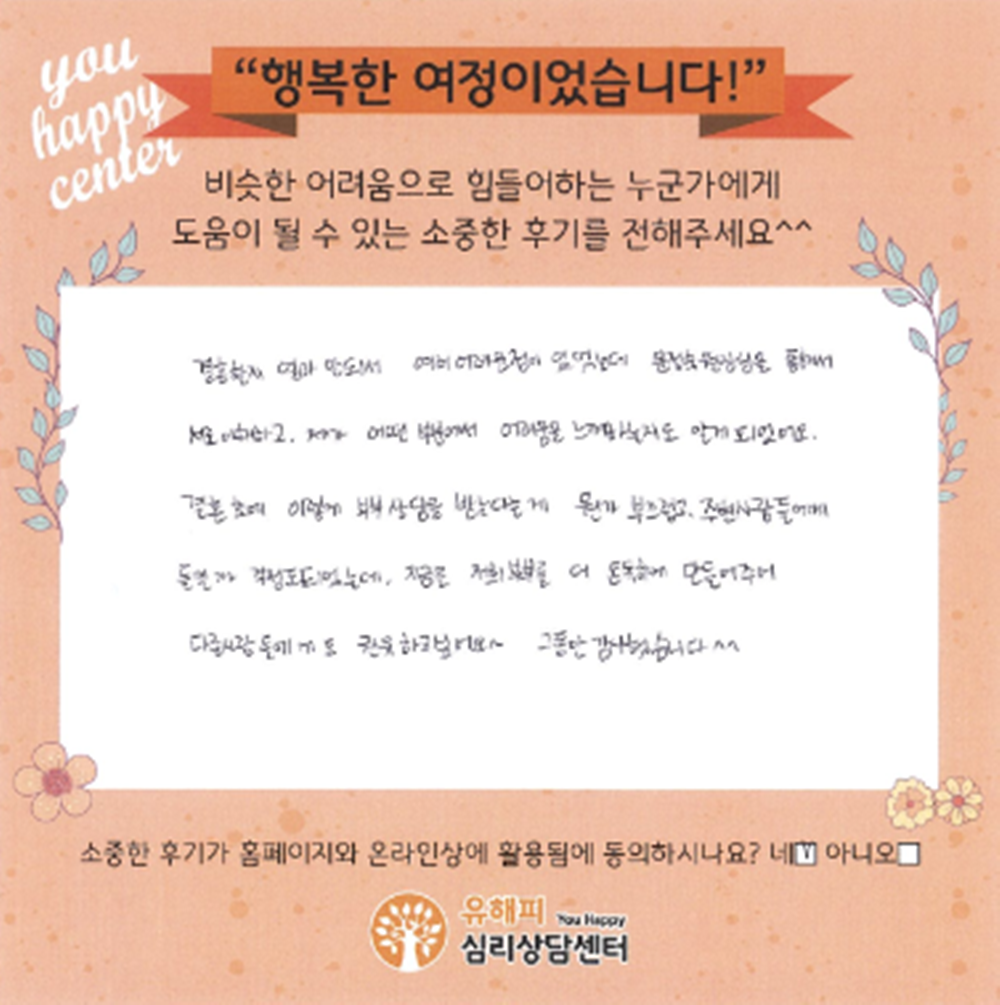 you
happy
center
“행복한 여정이었습니다!”
비슷한 어려움으로 힘들어하는 누군가에게
도움이 될 수 있는 소중한 후기를 전해주세요^^
결혼한지 얼마 안되서 여러 어려운점이 있었는데 통해서
서로 이해하고, 제가 어떤 부분에서 어려움을 느껴하는지도 알게 되었어요.
결혼 초에 이렇게 부부상담을 받는다는게 뭔가 부끄럽고, 주변사람들에게
들릴까 걱정도되었는데, 지금은 저희 부부를 더 돈독하게 만들어주어
다른사람들에게도 권유하고싶어요~ 그동안 감사했습니다^^
소중한 후기가 홈페이지와 온라인상에 활용됨에 동의하시나요? 네 아니오
유해피 You Happy
심리상담센터